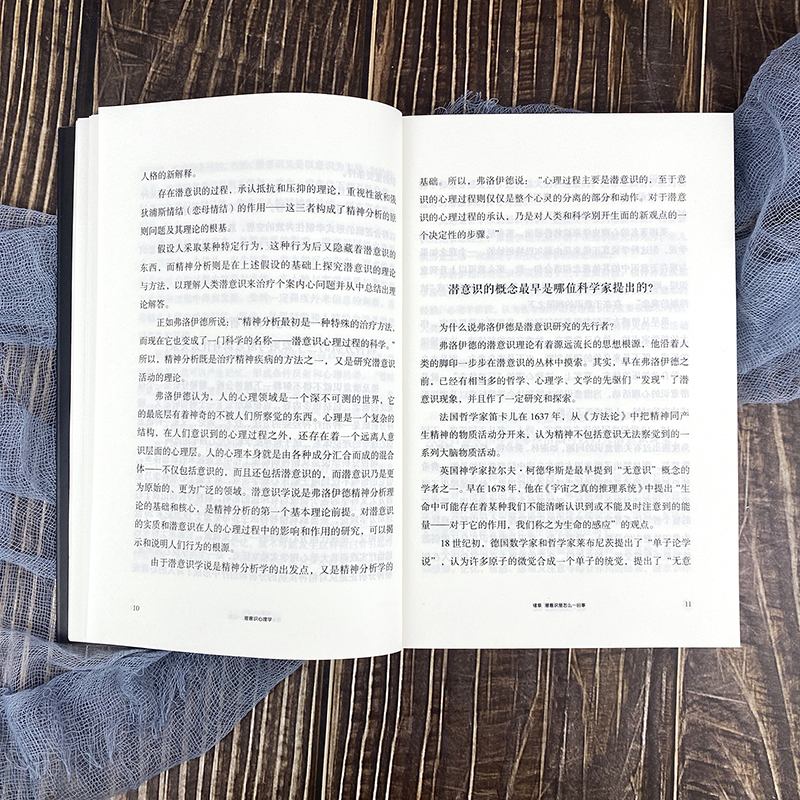 人格的新解释。
存在潜意识的过程，承认抵抗和压抑的理论，重视性欲和俄
狄浦斯情结（恋母情结）的作用——这三者构成了精神分析的原
则问题及其理论的根基。
假设人采取某种特定行为，这种行为后又隐藏着潜意识的
东西，而精神分析则是在上述假设的基础上探究潜意识的理论
与方法，以理解人类潜意识来治疗个案内心问题并从中总结出
理论解答。
正如弗洛伊德所说：“精神分析最初是一种特殊的治疗方法，
而现在它也变成了一门科学的名称——潜意识心理过程的科学。”
所以，精神分析既是治疗精神疾病的方法之一，又是研究潜意识
活动的理论。
弗洛伊德认为，人的心理领域是一个深不可测的世界，它
的最底层有着神奇的不被人们所察觉的东西。心理是一个复杂的
结构，在人们意识到的心理过程之外，还存在着一个远离人意
识层面的心理层。人的心理本身就是由各种成分汇合而成的混合
体——不仅包括意识的，而且还包括潜意识的，而潜意识乃是更
为原始的、更为广泛的领域。潜意识学说是弗洛伊德精神分析理
论的基础和核心，是精神分析的第一个基本理论前提。对潜意识
的实质和潜意识在人的心理过程中的影响和作用的研究，可以揭
示和说明人们行为的根源。
由于潜意识学说是精神分析学的出发点，又是精神分析学的
10
潜意识心理学
基础。所以，弗洛伊德说：“心理过程主要是潜意识的，至于意
识的心理过程则仅仅是整个心灵的分离的部分和动作。对于潜意
识的心理过程的承认，乃是对人类和科学别开生面的新观点的一
个决定性的步骤。”
潜意识的概念最早是哪值科学家提出的？
为什么说弗洛伊德是潜意识研究的先行者？
弗洛伊德的潜意识理论有着源远流长的思想根源，他沿着人
类的脚印一步步在潜意识的丛林中摸索。其实，早在弗洛伊德之
前，已经有相当多的哲学、心理学、文学的先驱们“发现”了潜
意识现象，并且作了一定研究和探索。
法国哲学家笛卡儿在 1637 年，从《方法论》中把精神同产
生精神的物质活动分开来，认为精神不包括意识无法察觉到的一
系列大脑物质活动。
英国神学家拉尔夫·柯德华斯是最早提到“无意识”概念的
学者之一。早在 1678 年，他在《宇宙之真的推理系统》中提出“生
命中可能存在着某种我们不能清晰认识到或不能及时注意到的能
量——对于它的作用，我们称之为生命的感应”的观点。
18 世纪初，德国数学家和哲学家莱布尼茨提出了“单子论学
说”，认为许多原子的微觉合成一个单子的统觉，提出了“无意
绪章 潜意识是怎么一回事
11